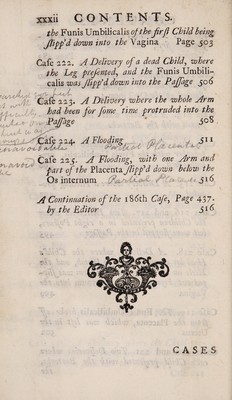 xxxii CONTENTS.
the Funis Umbilicalis of the first Child being
slipp'd down into the Vagina Page 503
Case 222. A Delivery of a dead Child, where
the Leg presented, and the Funis Umbili-
calis was slipp'd down into the Passage 506
Case 223. A Delivery where the whole Arm
had been for some time protruded into the
Passage 508
Case 224. A Flooding 511
Case 225. A Flooding, with one Arm and
part of the Placenta slipp'd down below the
Os internum Partial Placenta 516
A Continuation of the 186th Case, Page 437,
by the Editor 516
CASES